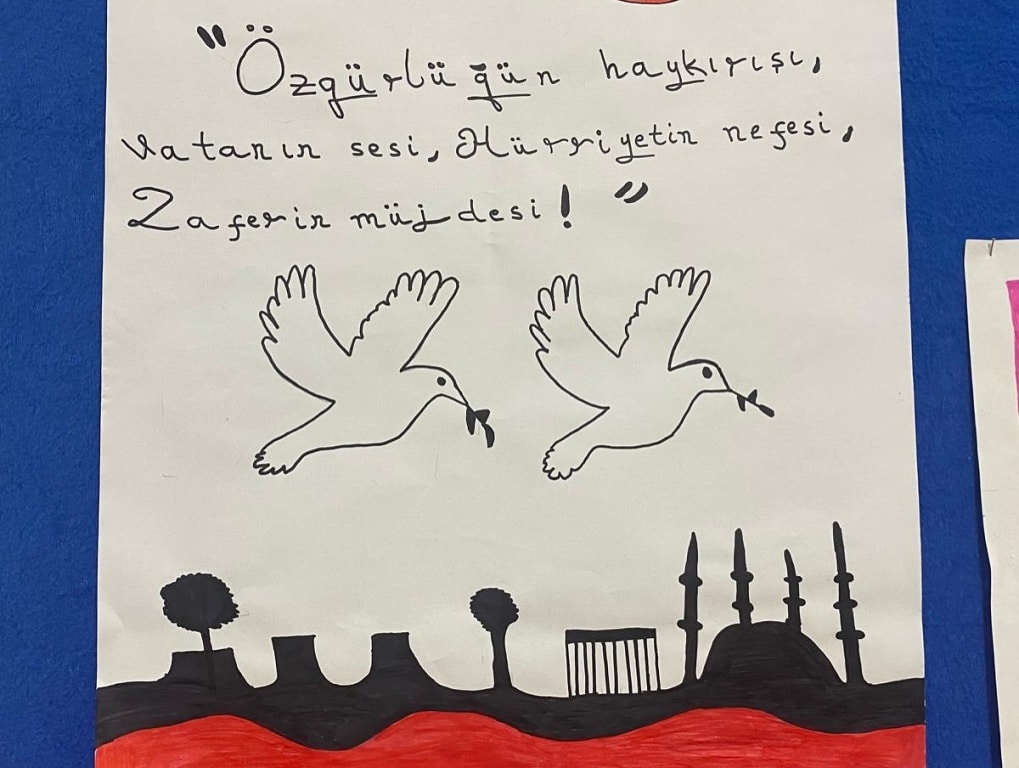 "Özgürlüğün haykırışı,
Vatanın sesi, Hürriyetin nefesi,
Zaferin müjdesi! "